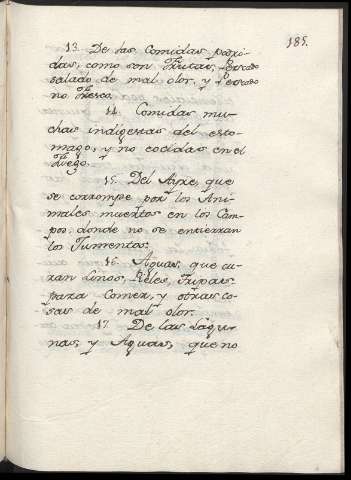 185.
13. De las Comidas podri-
das, como son Frutas, Pescado
salado de mal olor, y Pescado
no fresco.
14. Comidas mu-
chas indigestas del esto-
mago, y no cocidas en el
fuego.
15. Del Ayre, que
se corrompe por los Ani-
males muertos en los Cam-
pos, donde no se entierran
los Jumentos.
16. Aguas, que cu-
ran Linos, Pieles, Tripas
para comer, y otras co-
sas de mal olor.
17. De las Lagu-
nas, y Aguas, que no